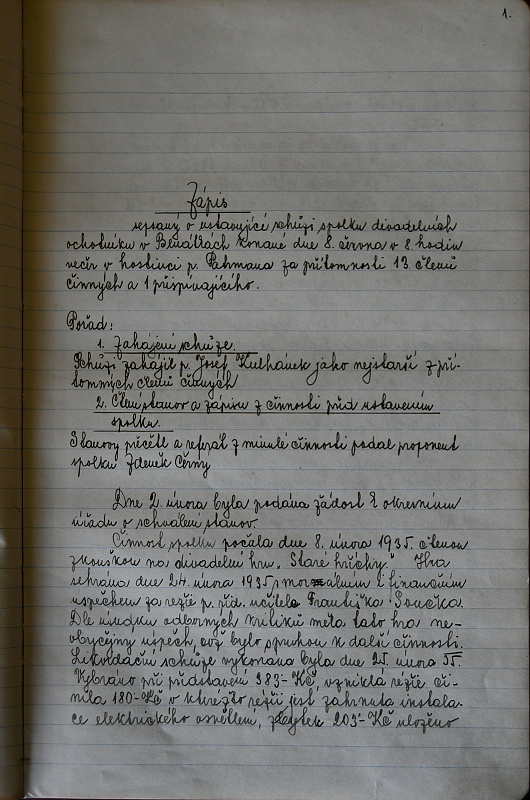 1.
Zápis
sepsaný o ustavující schůzi spolku divadelních
ochotníků v Benátkách konané dne 8. června v 8 hodin
večer v hostinci p. Pahmana za přítomnosti 13 členů
činných a 1 přispívajícího.
Pořad:
1. Zahájení schůze.
Schůzi zahájil p. Josef Kulhánek jako nejstarší z pří-
tomných členů činných
2. Čtení stanov a zápisu z činnosti před ustavením
spolku.
Stanovy přečetl a referát z minulé činnosti podal proponent
spolku Zdeněk Černý
Dne 2. února byla podána žádost k okresnímu
úřadu o schválení stanov.
Činnost spolku počala dne 8. února 1935. čtenou
zkouškou na divadelní hru „Staré hříchy". Hra
sehrána dne 24. února 1935 s morálním i finančním
úspěchem za režie p. říd. učitele Františka Součka.
Dle úsudku odborných kritiků měla tato hra ne-
obyčejný úspěch, což bylo spruhou k další činnosti.
Likvidační schůze vykonána byla dne 25. února 35.
Vybráno při představení 383-Kč, vzniklá režie či-
nila 180-Kč v kteréžto režii jest zahrnuta instala-
ce elektrického osvětlení, zbytek 203-Kč uloženo